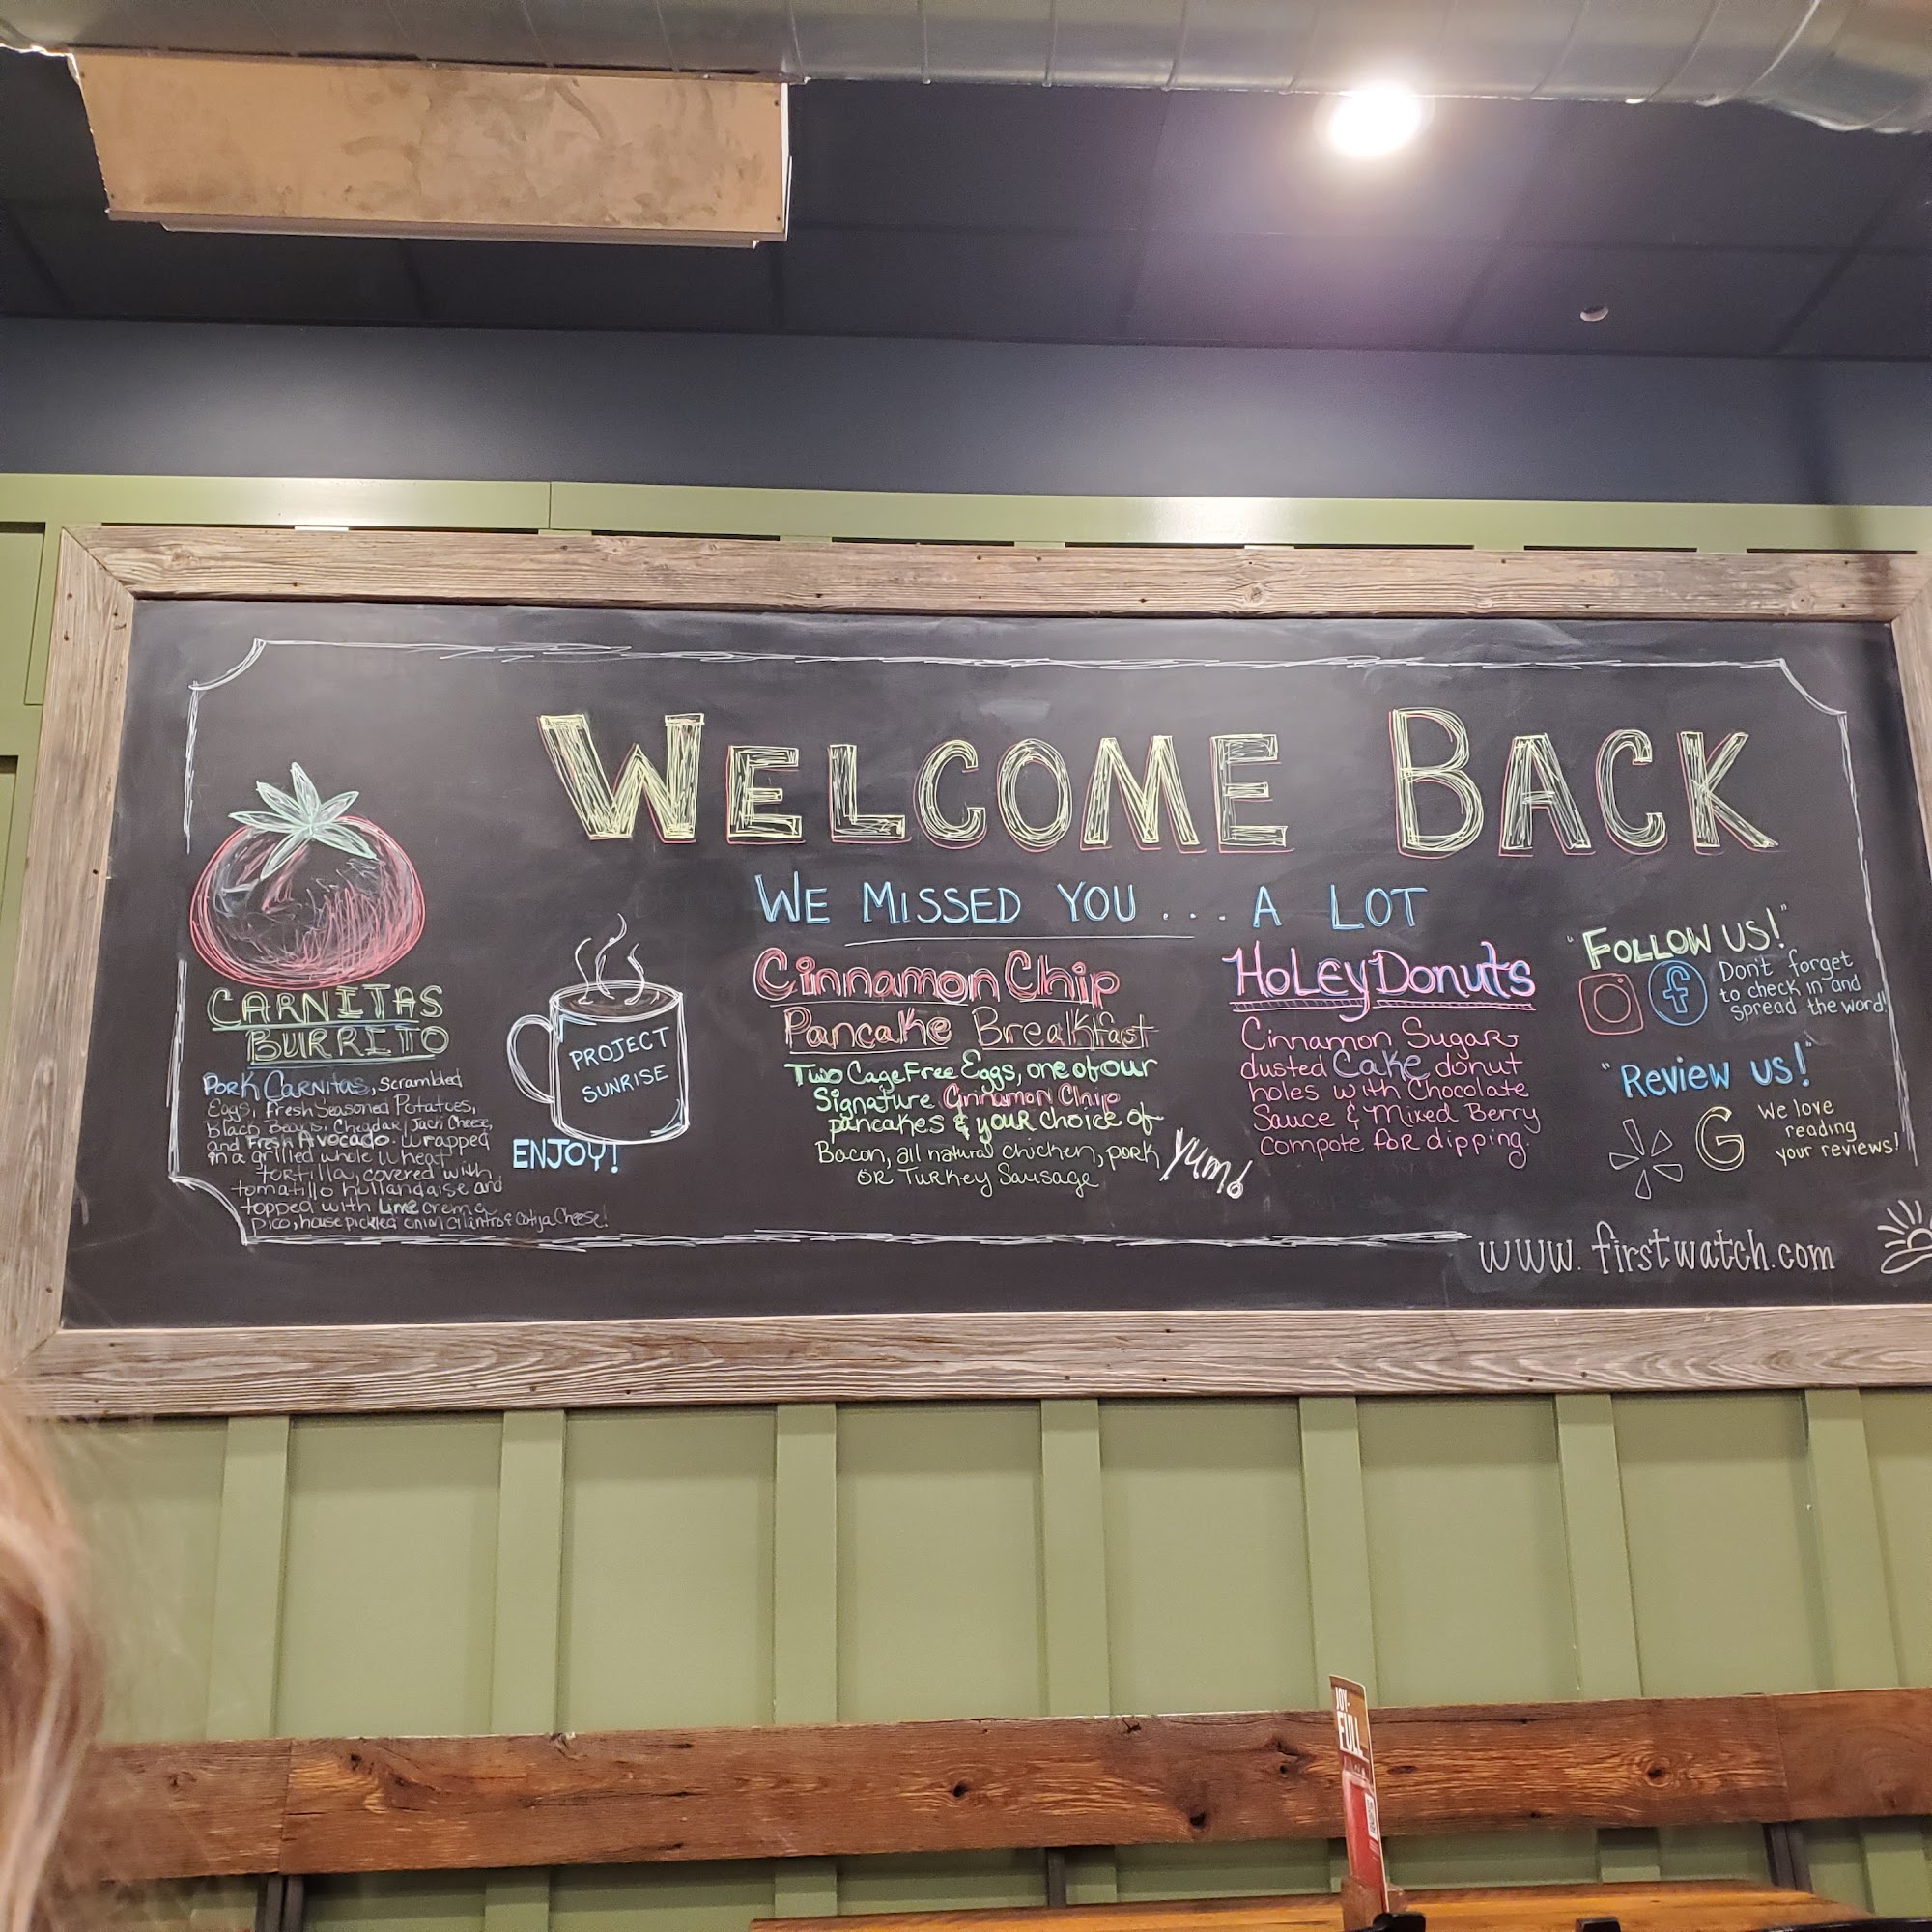 WELCOME BACK
WE MISSED YOU ... A LOT
CARNITAS
BURRITO
PORK CARNITAS, Scrambled
Eggs, Fresh Seasoned Potatoes,
Black Beans, Cheddar/Jack Cheese,
and Fresh Avocado. Wrapped
in a grilled whole wheat
tortilla, covered with
tomatillo hollandaise and
topped with Lime crema
Pico, house pickled onion cilantro & Cotija Cheese!
PROJECT
SUNRISE
ENJOY!
Cinnamon Chip
Pancake Breakfast
Two Cage Free Eggs, one of our
Signature Cinnamon Chip
pancakes & your choice of
Bacon, all natural chicken, pork
OR Turkey Sausage
Yum!
HoLey Donuts
Cinnamon Sugar
dusted Cake donut
holes with Chocolate
Sauce & Mixed Berry
Compote for dipping.
"FOLLOW US!"
Don't forget
to check in and
spread the word!
"Review us!"
G
We love
reading
your reviews!
www.firstwatch.com
JOY-
FULL